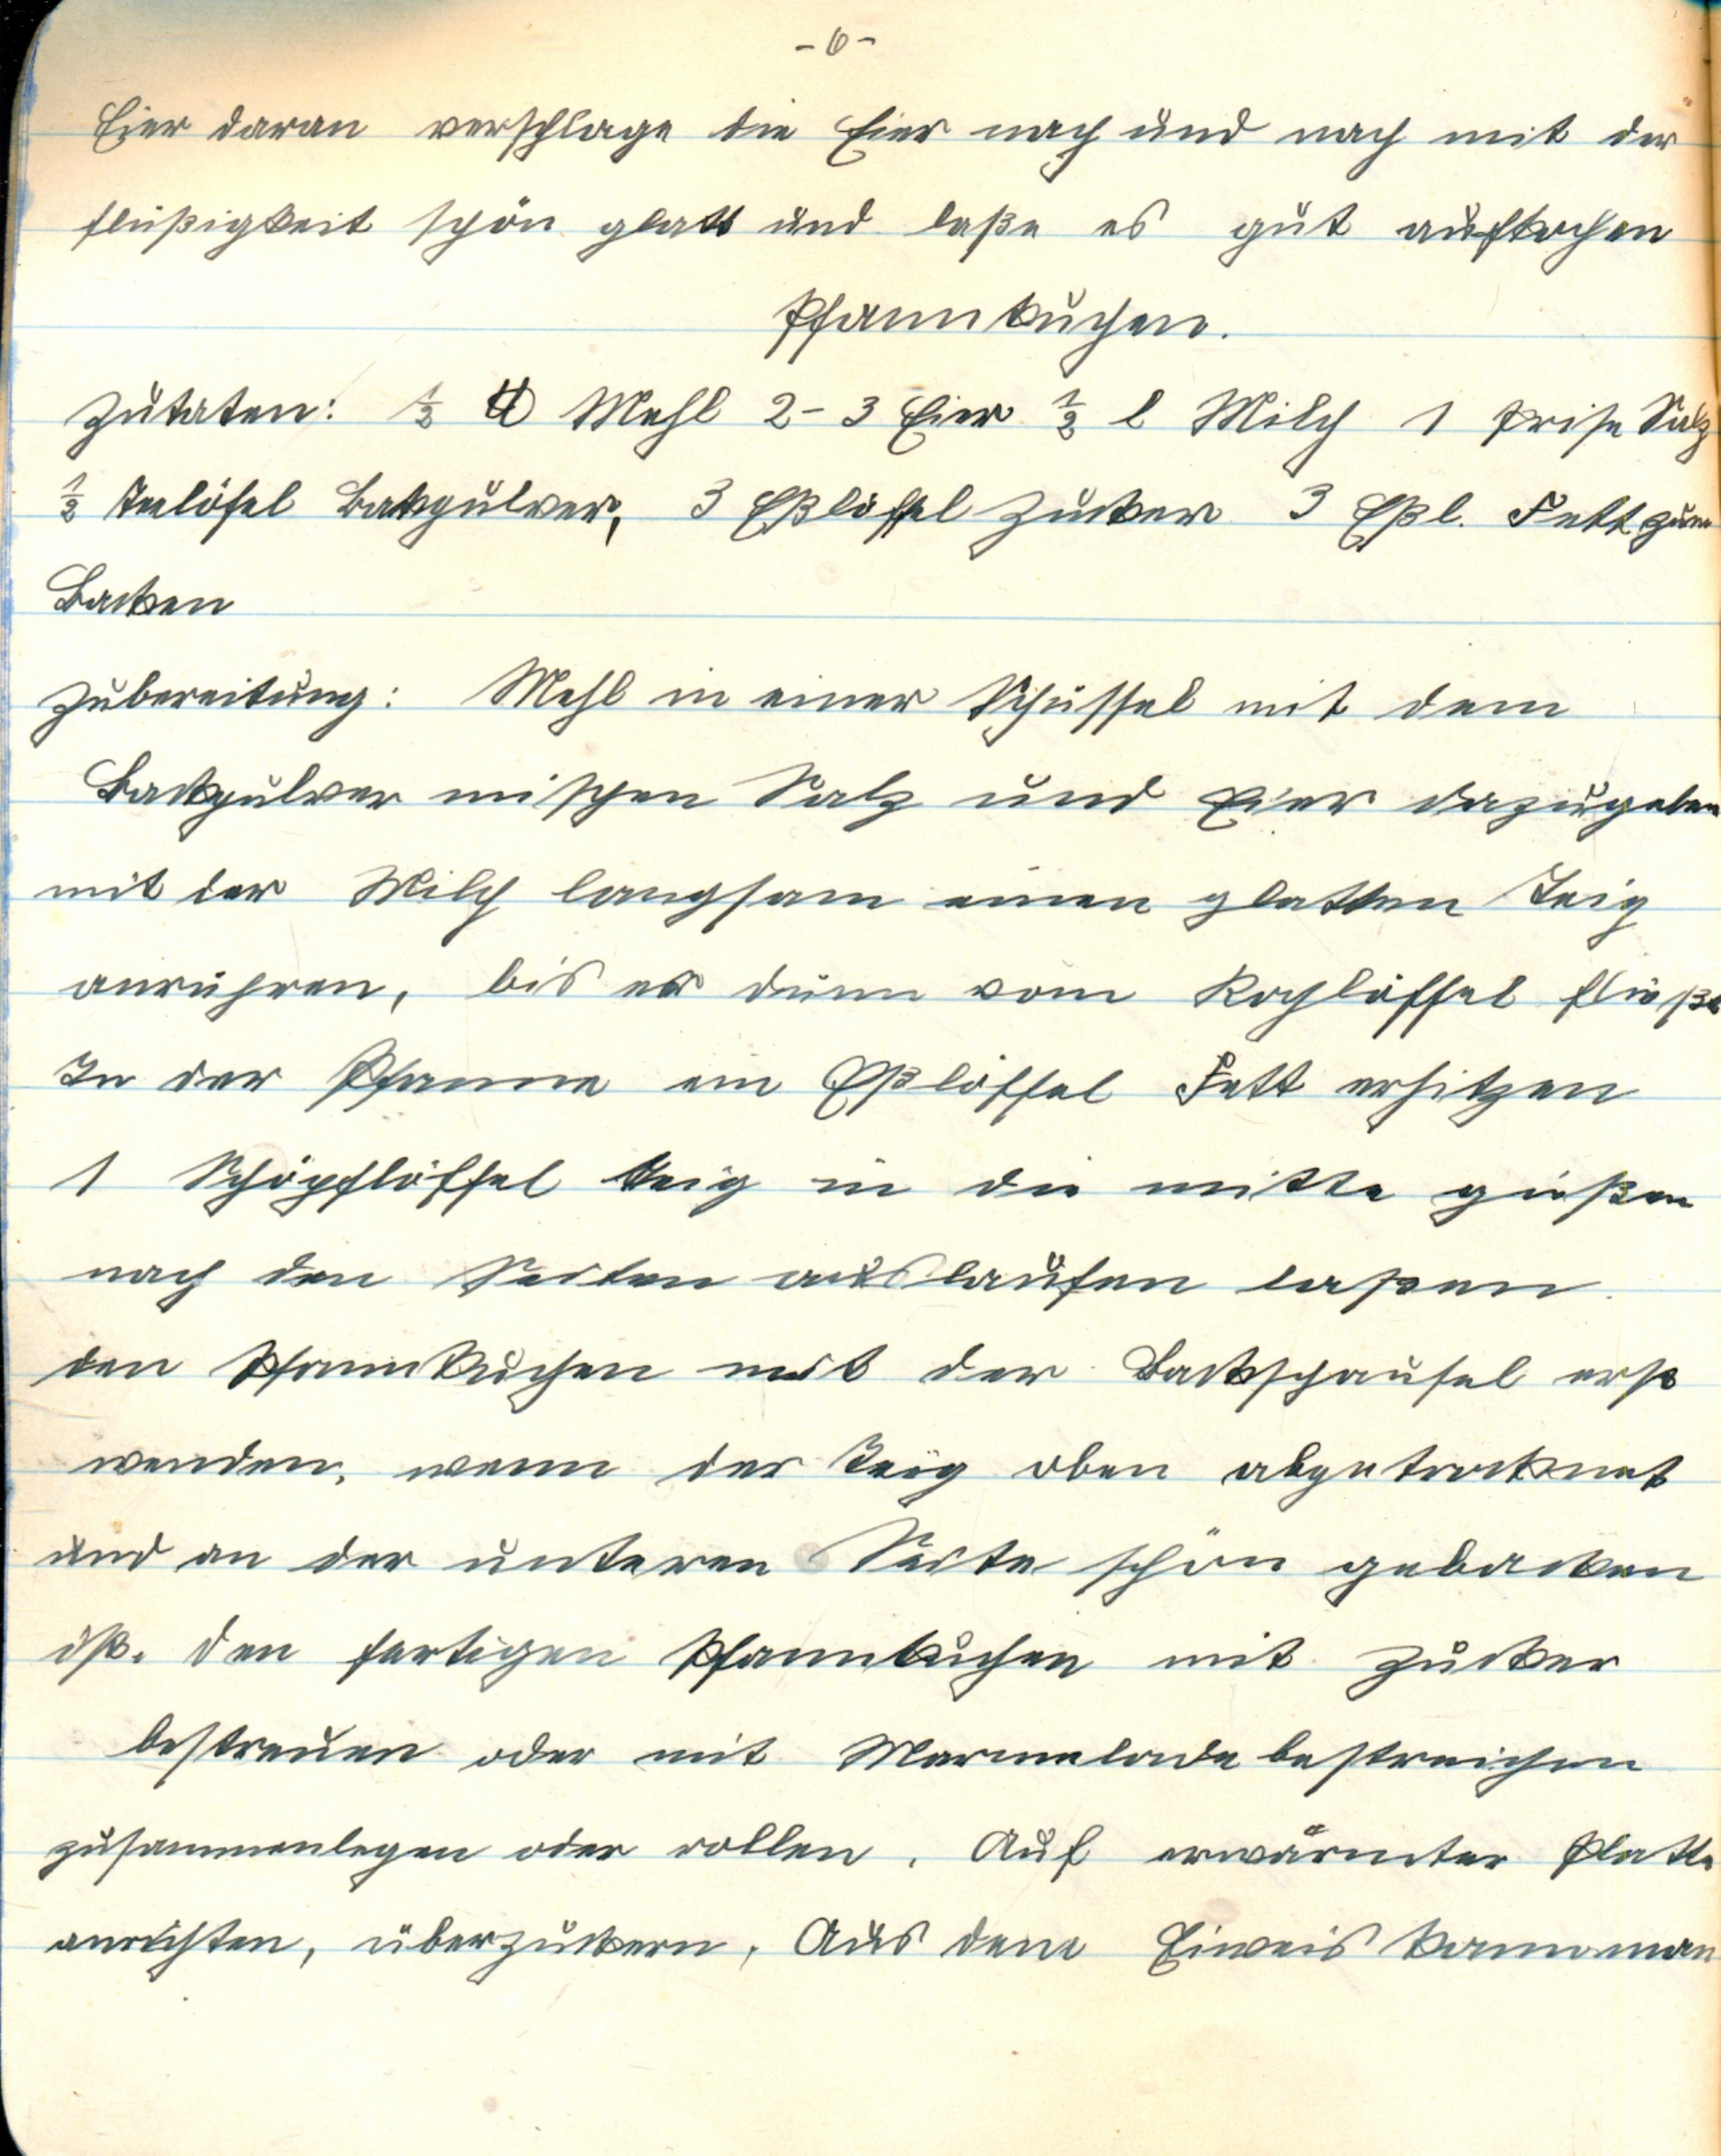 - 6 -
Eier daran verschlage die Eier nach und nach mit der
flüßigkeit schön glatt und laße es gut aufkochen
Pfannkuchen.
Zutaten: ½ ℔ Mehl 2-3 Eier ½ l Milch 1 Prise Salz
½ Teelöfel Backpulver, 3 Eßlöffel Zucker 3 Eßl. Fett zum
Backen
Zubereitung: Mehl in einer Schüssel mit dem
Backpulver mischen Salz und Eier dazugeben
mit der Milch langsam einen glatten Teig
anrühren, bis er dünn vom Kochlöffel fließt
In der Pfanne ein Eßlöffel Fett erhitzen
1 Schöpflöffel Teig in die mitte gießen
nach den Seiten auslaufen laßen.
den Pfannkuchen mit der Backschaufel erst
wenden, wenn der Teig oben abgetrocknet
und an der unteren Seite schön gebacken
ist. den fertigen Pfannkuchen mit Zucker
bestreuen oder mit Marmelade bestreichen
zusammenlegen oder rollen. Auf erwärmter Platte
anrichten, überzuckern, Aus dem Eiweis kann man